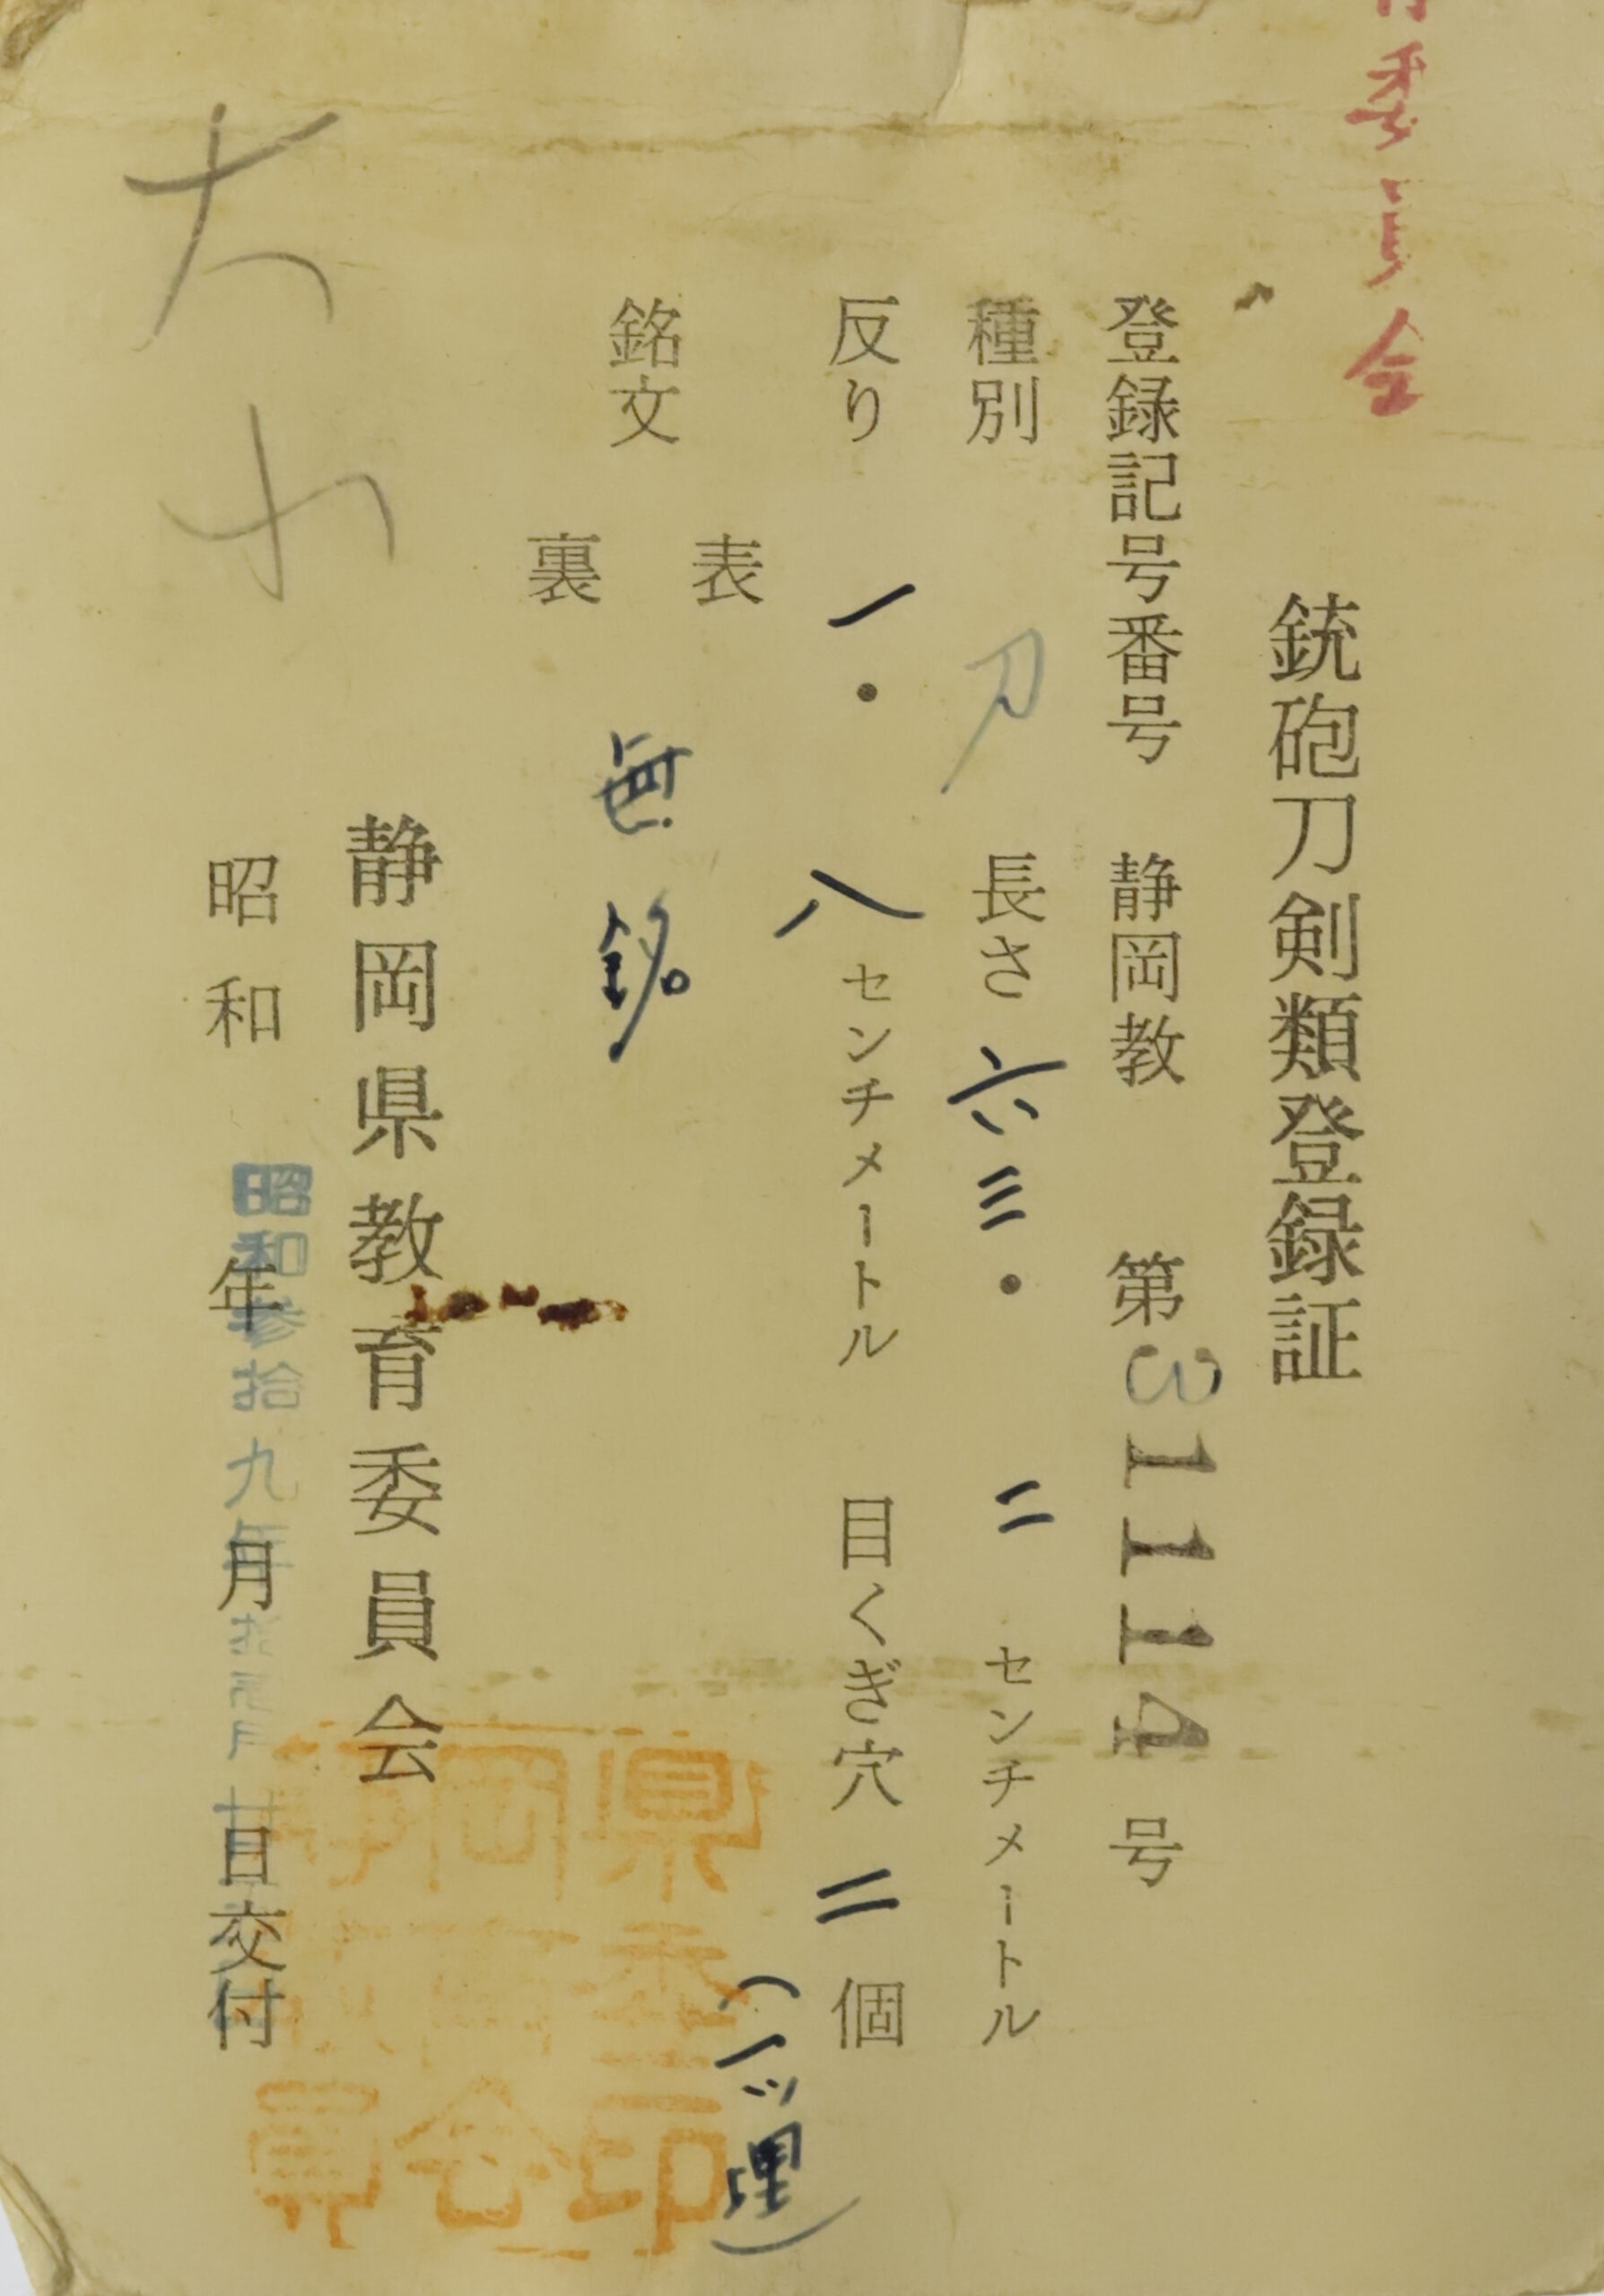 委員会
銃砲刀剣類登録証
登録記号番号 静岡教 第31114号
種別 刀 長さ 六三・二 センチメートル
反り 一・八 センチメートル 目くぎ穴 二 個
(一ツ埋)
表
銘文 無銘
裏
静岡県教育委員会
昭和 年 月 日交付
昭和参拾九年拾壱月廿日
静岡県教育委員会印
大小